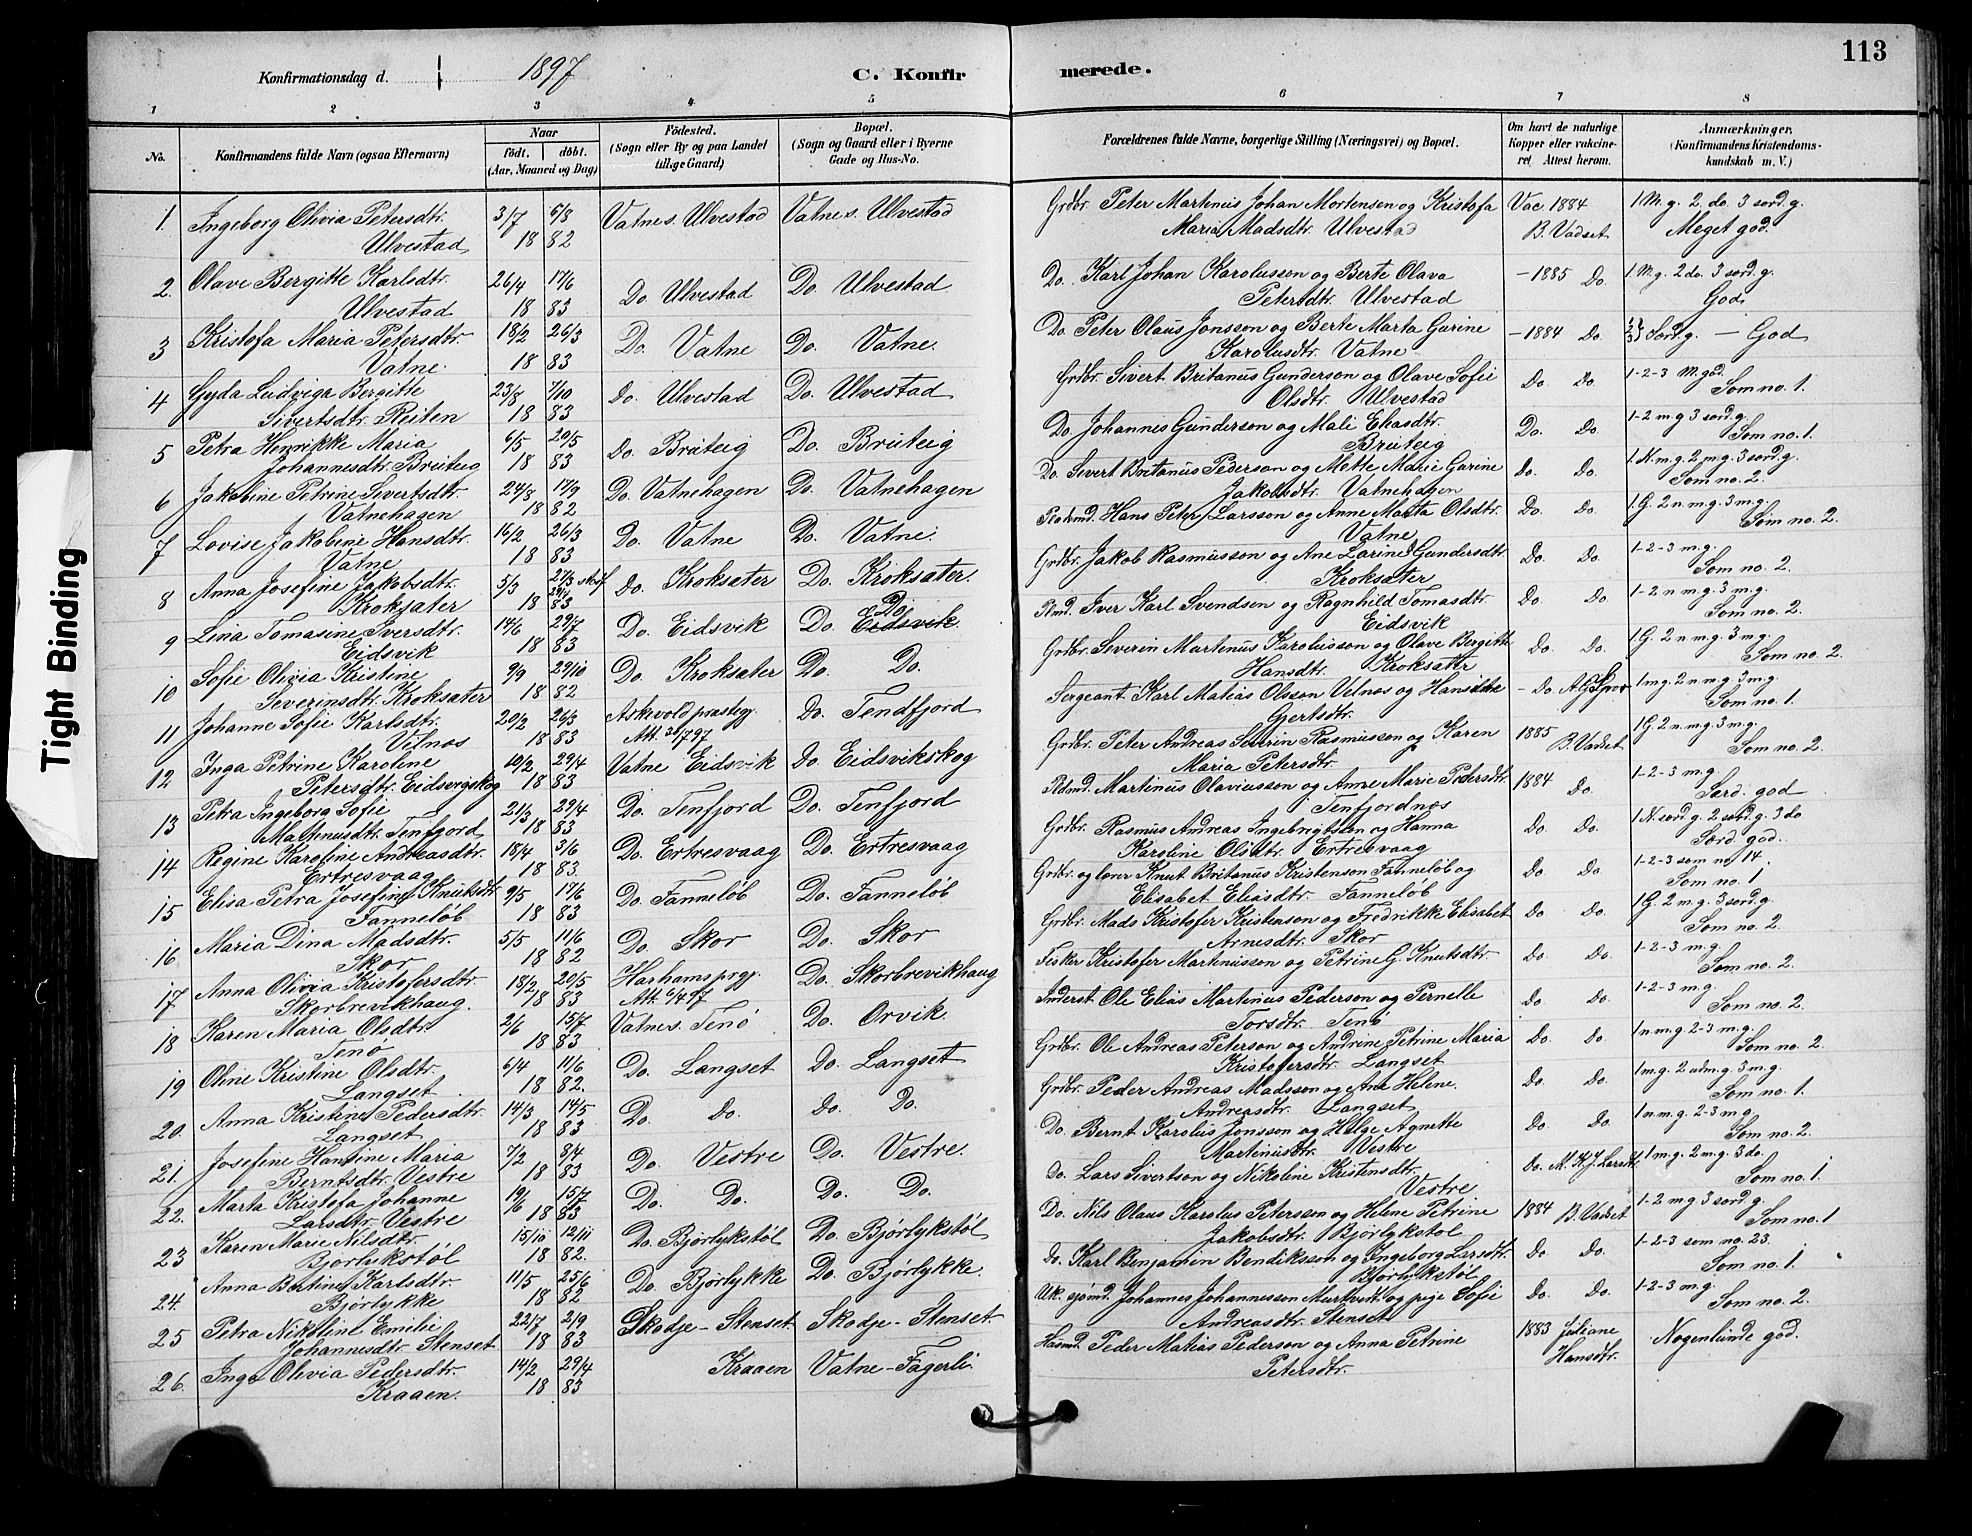 113
Konfirmationsdag d. 1897 C. Konfir merede.
1 2 3 4 5 6 7 8
No. Konfirmandens fulde Navn (ogsaa Efternavn) Naar født, døbt. (Aar, Maaned og Dag) Fødested. (Sogn eller By og paa Landet tillige Gaard) Bopæl. (Sogn og Gaard eller i Byerne Gade og Hus-No. Forældrenes fulde Navne, borgerlige Stilling (Næringsvei) og Bopæl. Om havt de naturlige Kopper eller vakcineret. Attest herom. Anmærkninger. (Konfirmandens Kristendomskundskab m. V.)
1. Ingeborg Olivia Petersdtr. 3/7 6/8 Vatne s. Ulvestad Vatne s. Ulvestad Grdbr. Peter Martenius Johan Mortensen og Kristofa Vac. 1884 1. M. g. 2. do. 3 sord. g.
Ulvestad 18 82 Maria Madsdtr. Ulvestad B. Vadset Meget god.
2. Olave Bergitte Karlsdtr. 26/4 17/6 Do Ulvestad Do. Ulvestad Do. Karl Johan Karolusson og Berte Olava - 1885 Do. 1. M. g. 2 do. 3 sord. g.
Ulvestad 18 83 Petersdtr. Ulvestad God.
3 Kristofa Maria Petersdtr. 18/2 26/3 Do. Vatne Do. Vatne. Do. Peter Olaus Jonsson og Berte Marta Gurine - 1884 Do. Sord. g. - God
Vatne. 18 83 Karolusdtr. Vatne
4 Gyda Ludviga Bergitte 23/8 7/10 Do. Ulvestad Do. Ulvestad Grdbr. Sivert Britanus Gunderson og Olave Sofie Do Do. 1-2-3 M. god.
Sivertsdtr. Reiten 18 83 Olsdtr. Ulvestad Som no. 1.
5 Petra Henrikke Maria 6/5 20/5 Do. Bruteig Do. Bruteig Do. Johannes Gunderson og Mali Eliasdtr. Do. Do. 1-2 m. g 3 sord. g.
Johannesdtr. Bruteig 18 83 Bruteig Som no. 1.
6 Jakobine Petrine Sivertsdtr. 24/8 17/9 Do. Vatnehagen Do. Vatnehagen Do. Sivert Britanus Pederson og Mette Marie Gurine Do. Do. 1. N. m. g. 2 m. g. 3 sord. g.
Vatnehagen 18 82 Jakobsdtr. Vatnehagen Som no. 2.
7 Lovise Jakobine Hansdtr. 16/2 26/3 Do. Vatne Do. Vatne. Hans Peter Larsson og Anne Marta Olsdtr. Do. Do. 1. G. 2 n m. g. 3 m g.
Vatne 18 83 Vatne Som no. 2.
8 Anna Josefine Jakobsdtr. 5/3 Do. Kroksater Do. Kroksater. Grdbr. Jakob Rasmusson og Ane Larine Gundersdtr Do. Do. 1-2-3 m. g.
Kroksater 18 83 Kroksater Som no. 2.
9 Lina Tomasine Iversdtr. 14/6 29/7 Do. Eidsvik Do. Eidsvik. Iver Karl Svendsen og Ragnhild Tomasdtr Do. Do. 1-2 n m. g. 3 m. g.
Eidsvik 18 83 Eidsvik Som no. 2.
10 Sofie Olivia Kristine 9/9 29/10 Do. Kroksater Do. Do. Grdbr. Severin Martenus Karolusson og Olave Bergitte Do. Do. 1. G. 2 n m. g. 3 m g.
Severinsdtr. Kroksater 18 82 Hansdtr. Kroksater Som no. 2.
11 Johanne Sofie Karlsdtr. 20/2 26/3 Askvold præsteg. Do. Tendfjord Sergeant Karl Matias Olsson Velnos og Hansine - Do. 1 m g. 2 n m. g. 3 m g.
Velnos 18 83 Gjertsdtr. Som no. 1.
12 Inga Petrine Karoline 10/2 29/4 Vatne Eidsvik Do Eidsvikskog Grdbr. Peter Andreas Severin Rasmusson og Karen 1885 B. Vadset 1 G. 2 n. m. g. 3 m g.
Petersdtr. Eidsvigskog 18 83 Maria Petersdtr. Som no. 2.
13 Petra Ingeborg Sofie 21/3 29/4 Do. Tenfjord Do. Tenfjord Martinus Olaviusson og Anne Marie Pedersdtr 1884 Do. 1-2-3 m. g
Martinusdtr. Tenfjord 18 83 Tenfjordnos Sord. god
14 Regine Karoline Andreasdtr. 18/4 3/6 Do. Ertresvaag Do. Ertresvaag Grdbr. Rasmus Andreas Ingebregtsen og Hanna Do. Do. 1 N. sord g. 2 sord. g. 3 do.
Ertresvaag 18 83. Karoline Olsdtr. Ertresvaag Sord. god.
15 Elisa Petra Josefine Knutsdtr. 9/5 17/6 Do. Fanneløb Do. Fanneløb Grdbr. og lærer Knut Britanus Kristenson Fanneløb og Do Do 1-2-3 som no 14.
Fanneløb 18 83 Elisabet Eliasdtr. Fanneløb Som no. 1
16 Maria Dina Madsdtr. 5/5 11/6 Do. Skor Do. Skor Grdbr. Mads Kristofer Kristenson og Fredrikke Elisabet Do Do. 1 G. 2 m g. 3 sord. g.
Skor 18 82 Arnesdtr. Skor Som no. 2.
17 Anna Olivia Kristofersdtr. 18/2 20/5 Harhams prgj. Do. Skorbrevikhaug Fisker Kristofer Martinusson og Petrine G. Knutsdtr Do. Do. 1-2-3 m. g.
Skorbrevikhaug. 18 83 Att. 6/4 97 Som no. 2.
18 Karen Maria Olsdtr. 2/6 15/7 Vatne s. Tenø Do. Orvik. Inderst. Ole Elias Martinus Pederson og Pernelle Do Do. 1-2-3 m. g.
Tenø 18 83 Torsdtr. Tenø Som no. 2.
19 Oline Kristine Olsdtr. 6/4 11/6 Do. Langset Do. Langset Grdbr. Ole Andreas Peterson og Andrine Petrine Maria Do. Do. 1 n m. g. 2-3 m. g.
Langset 18 82. Kristofersdtr. Langset Som no. 2.
20. Anna Kristine Pedersdtr. 14/3 14/5 Do. Do. do. Do. Grdbr. Peder Andreas Madsson og Ana Helene. Do Do. 1 m. g. 2 udm. g. 3 m. g.
Langset 18 83 Andreasdtr. Langset Som no. 1.
21. Josefine Hantine Maria 7/2 8/4 Do. Vestre Do. Vestre. Do. Bernt Karolus Jonsson og Helge Agnette Do Do 1 n m. g. 2-3 m g
Berntsdtr. Vestre 18 83 Martinusdtr. Vestre Som no. 2.
22. Marta Kristofa Johanne 19/6 15/7 Do. Do. Do. Do. Do. Lars Sivertson og Nikoline Kristensdtr. Do. 1 m. g. 2 m. g. 3 do.
Larsdtr. Vestre 18 83 Vestre Som no. 1
23 Karen Marie Nilsdtr. 15/10 12/11 Do. Bjørlykstøl Do. Bjørlykstøl Do. Nils Olaus Karolus Peterson og Helene Petrine 1884 B. Vadset 1-2 m. g 3 sord. g.
Bjørlykstøl 18 82. Jakobsdtr. Bjørlykstøl Som no. 1
24. Anna Bertine Karlsdtr. 11/5 25/6 Do. Bjørlykke Do. Bjørlykke. Do. Karl Benjamin Bendiksson og Ingeborg Larsdtr. Do Do. 1-2-3 som no. 23.
Bjørlykke 18 82 Bjørlykstøl Som no. 1
25 Petra Nikoline Emilie 22/7 2/9 Skodje - Stenset. Skodje - Stenset. Uk. sjømd. Johannes Johannesson Murkvik og pige Sofie Do. Do. 1-2-3 m. g.
Johannesdtr. Stenset 18 83 Andreasdtr. Stenset Som no. 2.
26. Inga Olivia Pedersdtr. 14/2 29/4 Kraaen Vatne - Fagerli Husmd. Peder Matias Pederson og Anna Petrine 1883 Juliane Nogenlunde god.
Kraaen. 18 83 Petersdtr. Hansdtr.
Tight Binding